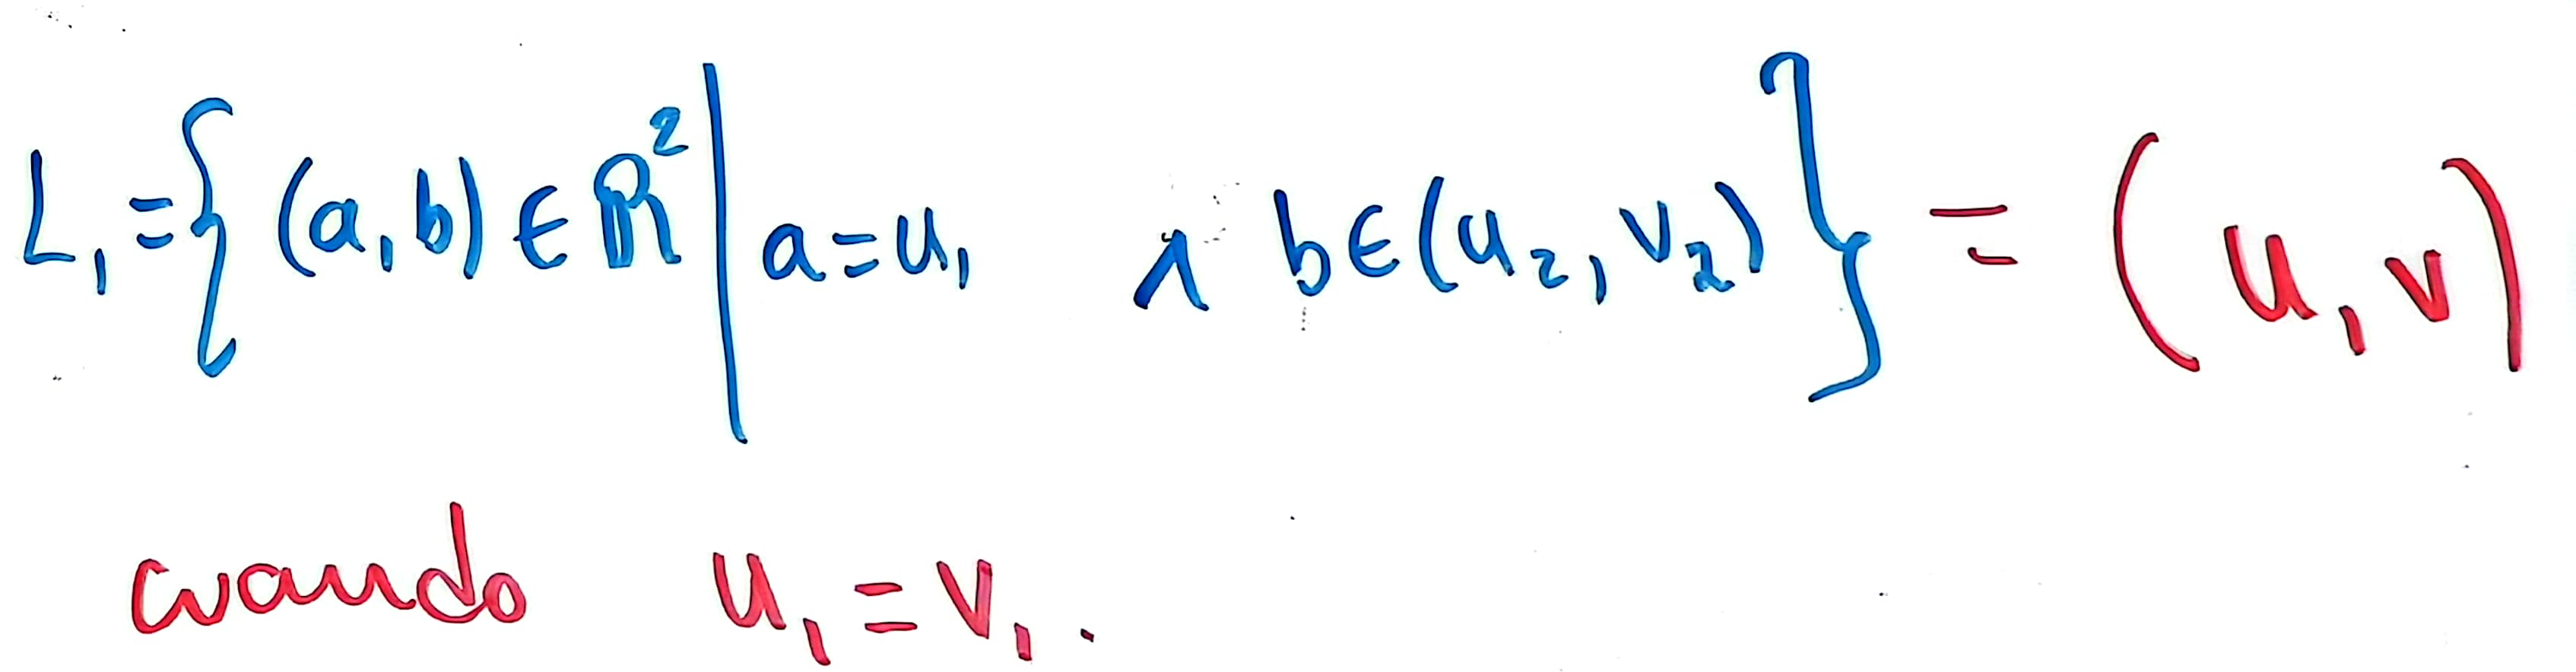 L₁ = { (a,b) ∈ ℝ² | a = u₁ ∧ b ∈ (u₂, v₂) } = (u, v)
cuando u₁ = v₁.